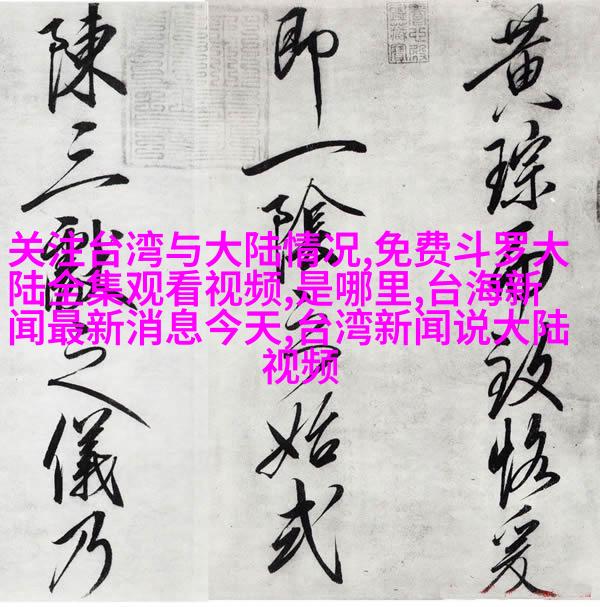 黄琮而致恪爰
即一陰始式
陳三獻之儀乃
关注台湾与大陆情况,免费斗罗大
陆全集观看视频,是哪里,台海新
闻最新消息今天,台湾新闻说大陆
视频